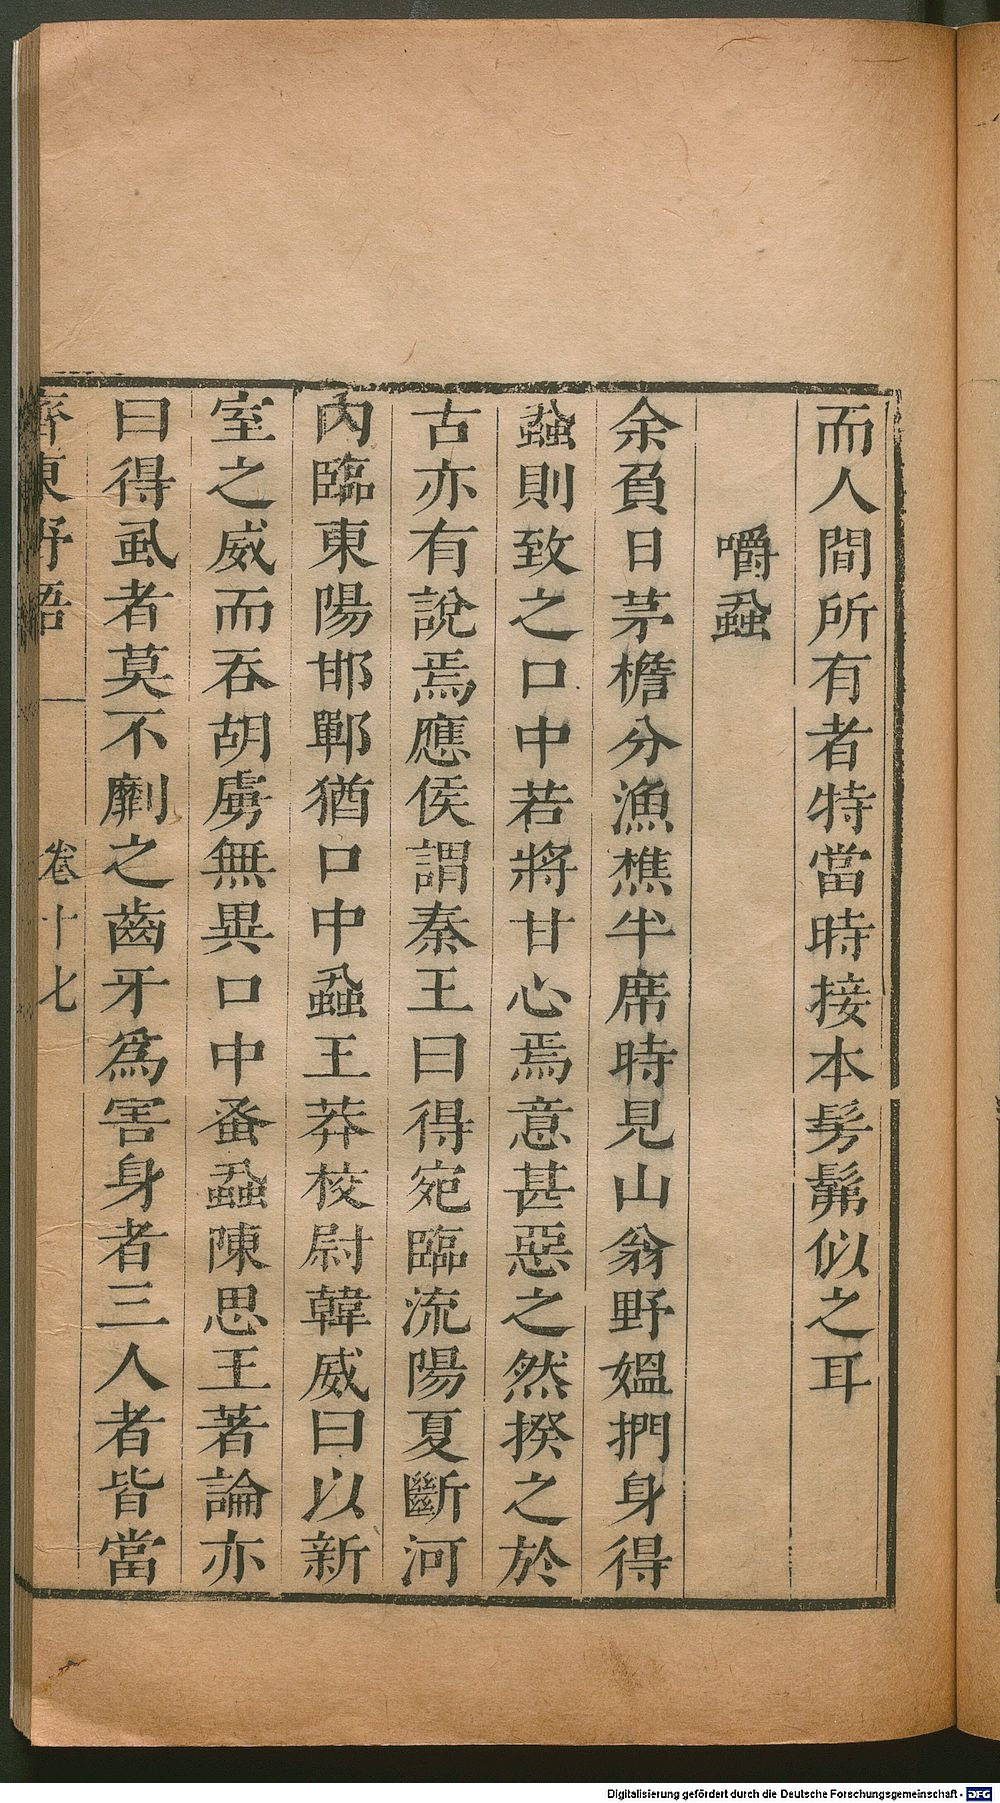 而人間所有者特當時接本髣髴似之耳
嚼蝨
余負日茅檐分漁樵半席時見山翁野媼捫身得
蝨則致之口中若將甘心焉意甚惡之然揆之於
古亦有說焉應侯謂秦王曰得宛臨流陽夏斷河
內臨東陽邯鄲猶口中蝨王莽校尉韓威曰以新
室之威而吞胡虜無異口中蚤蝨陳思王著論亦
曰得虱者莫不劘之齒牙爲害身者三人者皆當
齊東野語 卷十七
Digitalisierung gefördert durch die Deutsche Forschungsgemeinschaft - DFG